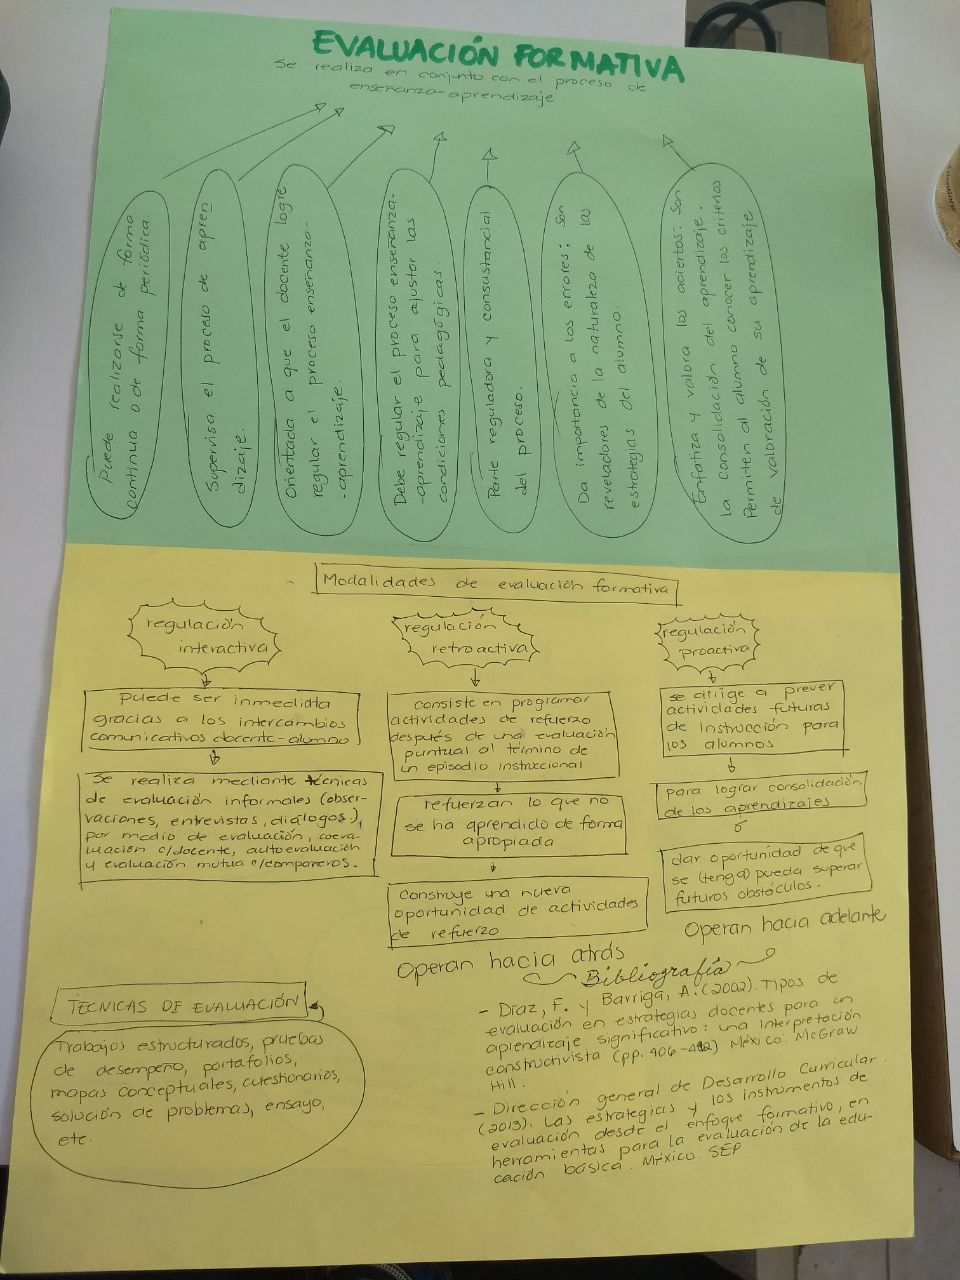 EVALUACIÓN FORMATIVA
Se realiza en conjunto con el proceso de
enseñanza-aprendizaje
Puede realizarse de forma
continua o de forma periódica.
Supervisa el proceso de apren
dizaje.
Orientada a que el docente logre
regular el proceso enseñanza-
-aprendizaje.
Debe regular el proceso enseñanza-
-aprendizaje para ajustar las
condiciones pedagógicas.
Parte reguladora y consustancial
del proceso.
Da importancia a los errores: Son
reveladores de la naturaleza de las
estrategias del alumno.
Enfatiza y valora los aciertos: Son
la consolidación del aprendizaje.
Permiten al alumno conocer los criterios
de valoración de su aprendizaje
Modalidades de evaluación formativa
regulación
interactiva
puede ser inmediata
gracias a los intercambios
comunicativos docente-alumno
Se realiza mediante técnicas
de evaluación informales (obser-
vaciones, entrevistas, diálogos),
por medio de evaluación, coeva-
luación c/docente, autoevaluación
y evaluación mutua c/compañeros.
regulación
retroactiva
consiste en programar
actividades de refuerzo
después de una evaluación
puntual al término de
un episodio instruccional
refuerzan lo que no
se ha aprendido de forma
apropiada
construye una nueva
oportunidad de actividades
de refuerzo
Operan hacia atrás
regulación
proactiva
se dirige a prever
actividades futuras
de instrucción para
los alumnos
para lograr consolidación
de los aprendizajes
ó
dar oportunidad de que
se (tenga) pueda superar
futuros obstáculos.
Operan hacia adelante
TÉCNICAS DE EVALUACIÓN
Trabajos estructurados, pruebas
de desempeño, portafolios,
mapas conceptuales, cuestionarios,
solución de problemas, ensayo,
etc.
Bibliografía
- Díaz, F. y Barriga, A. (2002). Tipos de
evaluación en estrategias docentes para un
aprendizaje significativo: una interpretación
constructivista (pp. 406- ) México. McGraw
Hill.
- Dirección general de Desarrollo Curricular.
(2013). Las estrategias y los instrumentos de
evaluación desde el enfoque formativo, en
herramientas para la evaluación de la edu-
cación básica. México. SEP